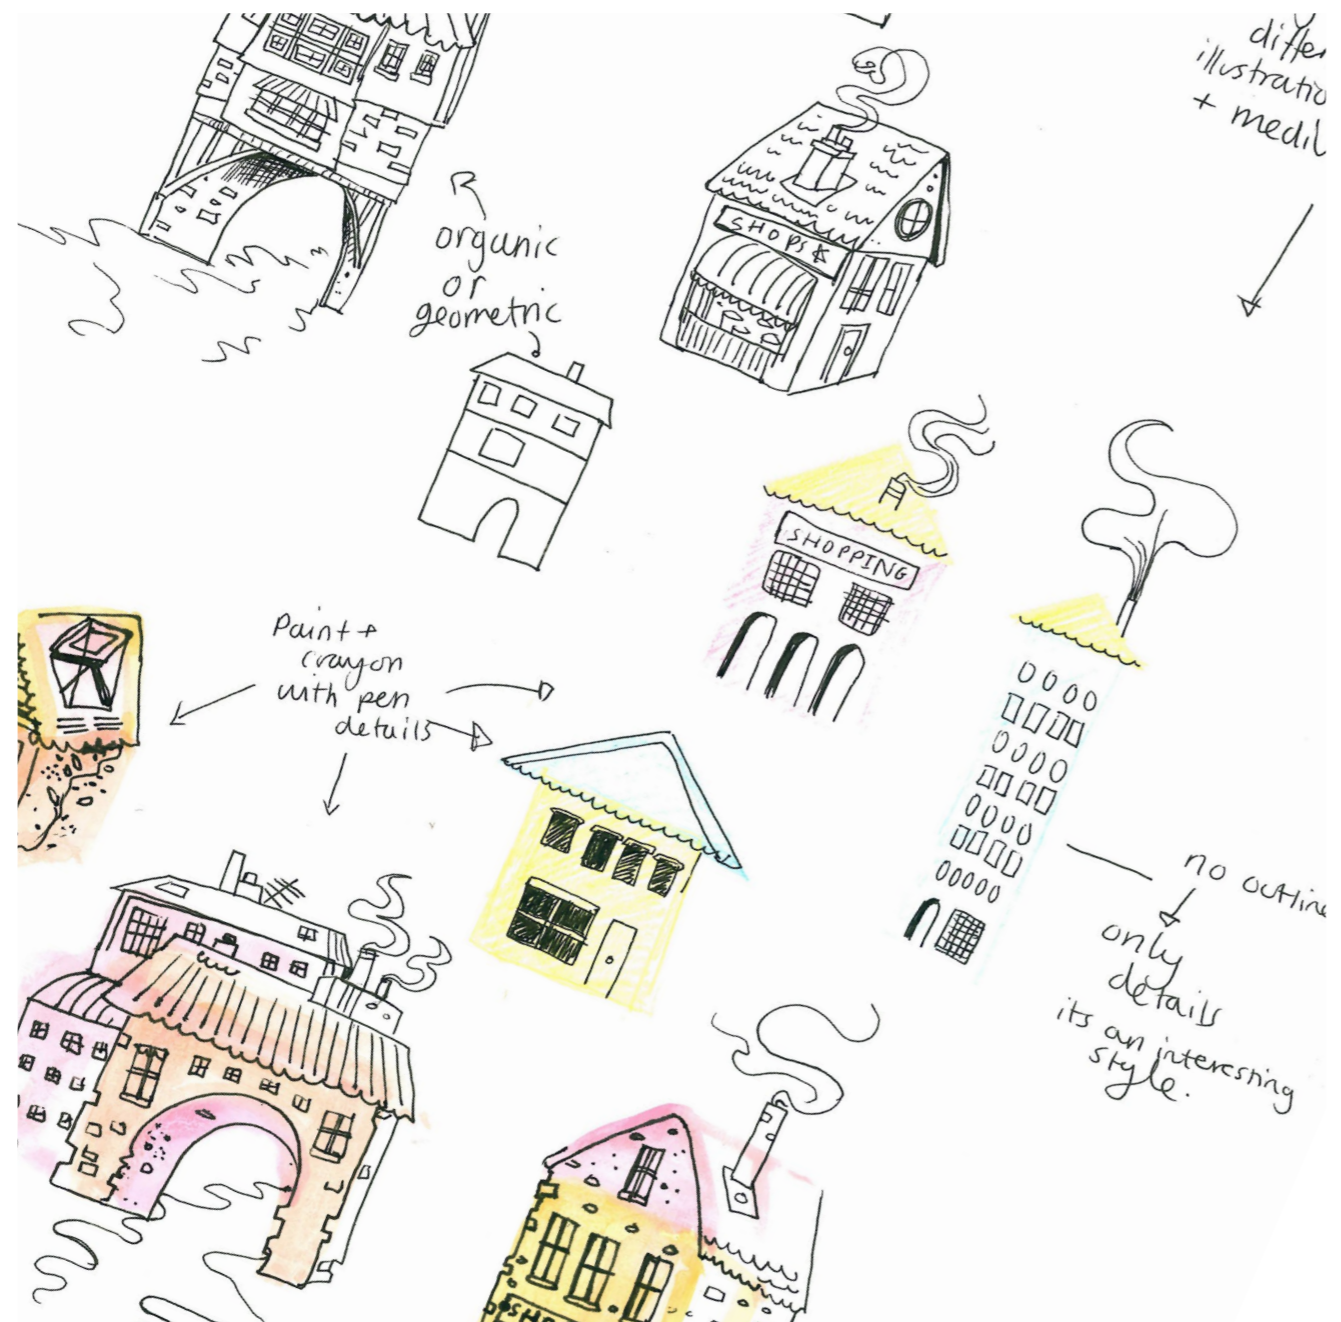 +
organic
or
geometric
SHOPS
SHOPPING
Paint +
crayon
with pen
details
no outline
only
details
its an interesting
style.